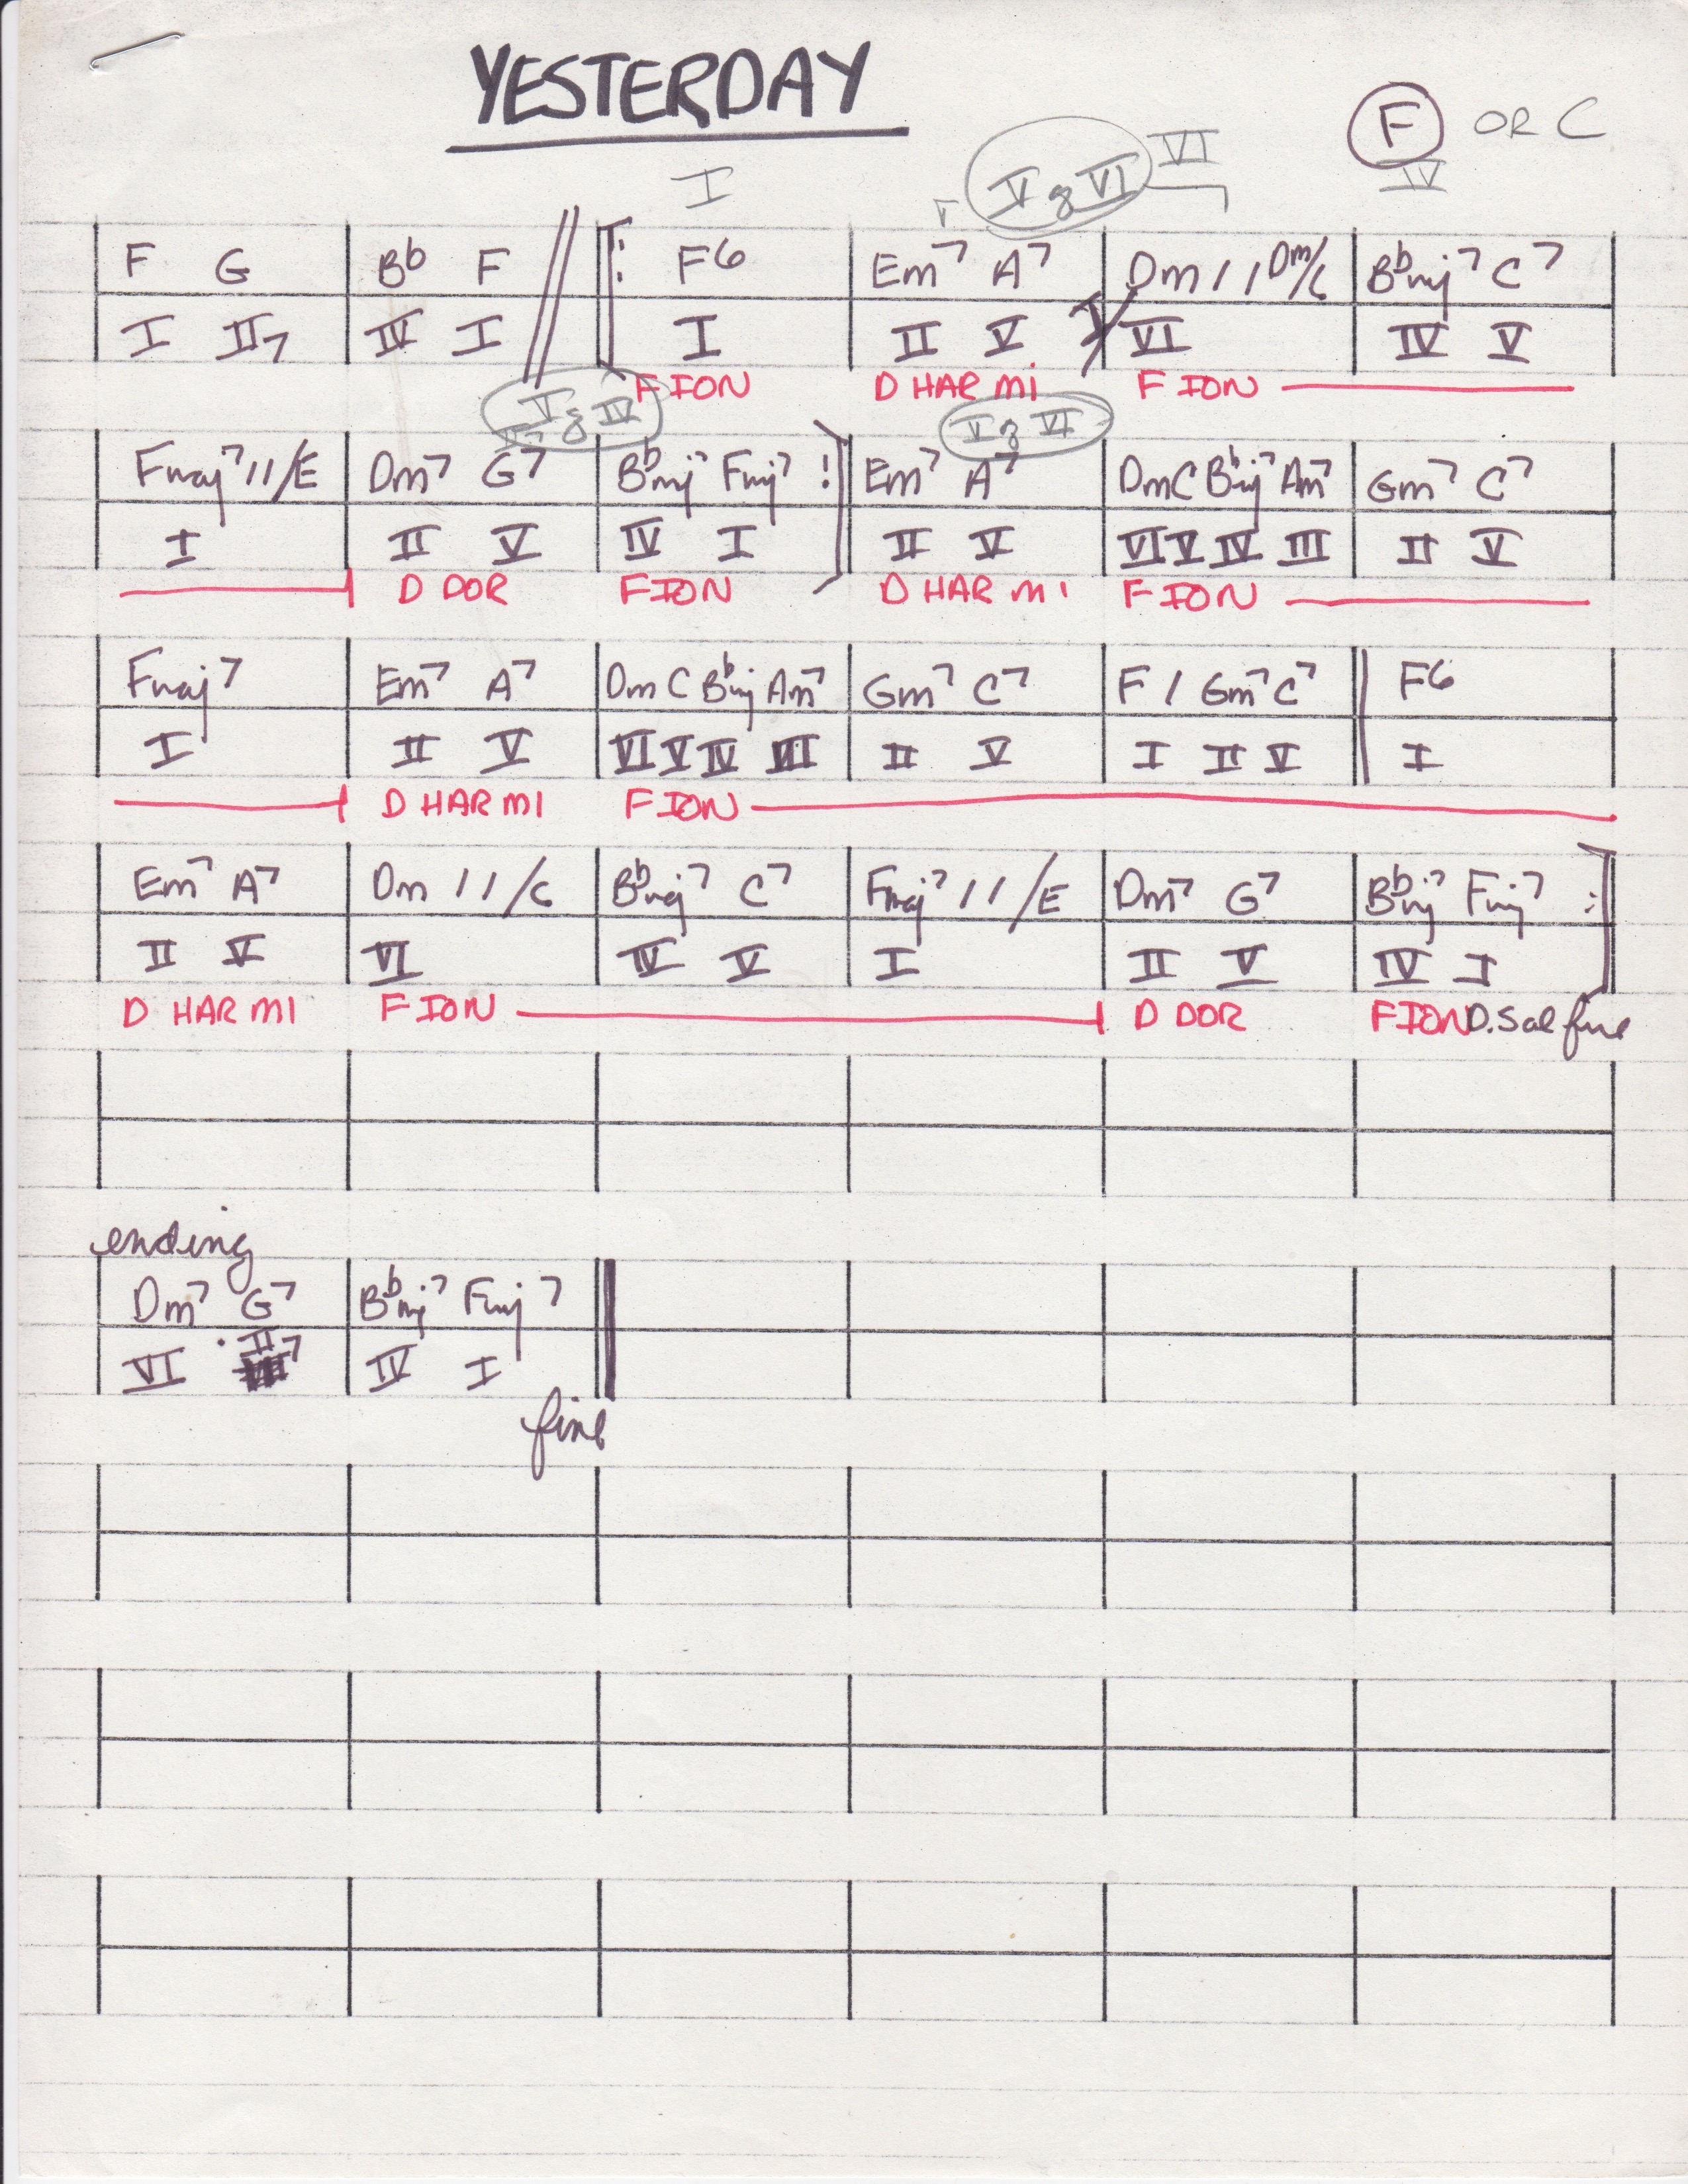 YESTERDAY
F OR C
IV
I V of VI VI
F G B♭ F F6 Em7 A7 Dm / / Dm/C B♭mj7 C7
I II7 IV I I II V VI IV V
F ION D HAR mi F ION
V of IV V of VI
Fmaj7 / / /E Dm7 G7 B♭mj7 Fmj7 Em7 A7 Dm C B♭mj7 Am7 Gm7 C7
I II V IV I II V VI V IV III II V
D DOR F ION D HAR MI F ION
Fmaj7 Em7 A7 Dm C B♭mj Am7 Gm7 C7 F / Gm7 C7 F6
I II V VI V IV III II V I II V I
D HAR MI F ION
Em7 A7 Dm / / /C B♭maj7 C7 Fmaj7 / / /E Dm7 G7 B♭mj7 Fmj7
II V VI IV V I II V IV I
D HAR MI F ION D DOR F ION D.S al fine
ending
Dm7 G7 B♭mj7 Fmj7
VI II7 IV I
fine